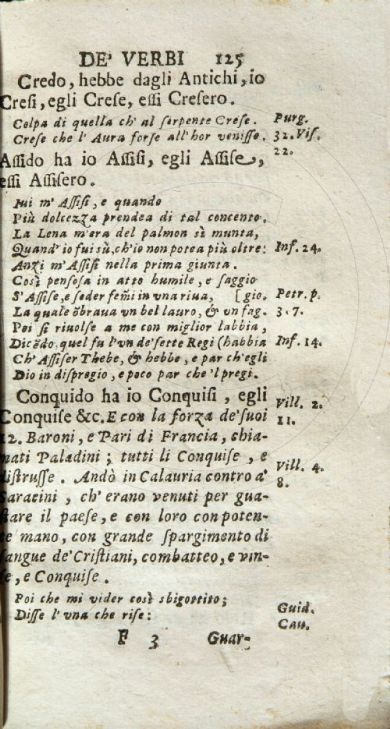 DE' VERBI 125
Credo, hebbe dagli Antichi, io
Cresi, egli Crese, essi Cresero.
Colpa di quella ch' al serpente Crese. Purg.
Crese che l' Aura forse all'hor venisse. 32. Vis.
Assido ha io Assisi, egli Assise, 22.
essi Assisero.
Iui m' Assisi, e quando
Più dolcezza prendea di tal concento.
La Lena m'era del palmon sè munta,
Quand' io fui sù, ch'io non potea più oltre: Inf. 24.
Anzi m' Assisi nella prima giunta.
Così pensosa in atto humile, e saggio
S' Assise, e seder femi in vna riua, [gio. Petr. p.
La quale õbraua vn bel lauro, & vn fag. 3. 7.
Poi si riuolse a me con miglior labbia,
Dicẽdo. quel fu l'vn de' sette Regi (habbia Inf. 14.
Ch' Assiser Thebe, & hebbe, e par ch'egli
Dio in dispregio, e poco par che 'l pregi.
Conquido ha io Conquisi, egli
Conquise &c. E con la forza de' suoi Vill. 2.
12. Baroni, e Pari di Francia, chia- 11.
mati Paladini; tutti li Conquise, e
distrusse. Andò in Calauria contro a' Vill. 4.
Saracini, ch' erano venuti per gua- 8.
stare il paese, e con loro con poten-
te mano, con grande spargimento di
sangue de' Cristiani, combatteo, e vin-
se, e Conquise.
Poi che mi vider così sbigottito;
Disse l' vna che rise: Guid.
Cau.
F 3 Guar-